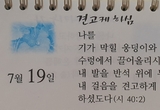 견고케 하심
나를
기가 막힐 웅덩이와
수렁에서 끌어올리시
내 발을 반석 위에
내 걸음을 견고하게
하셨도다(시 40:2)
7월 19일